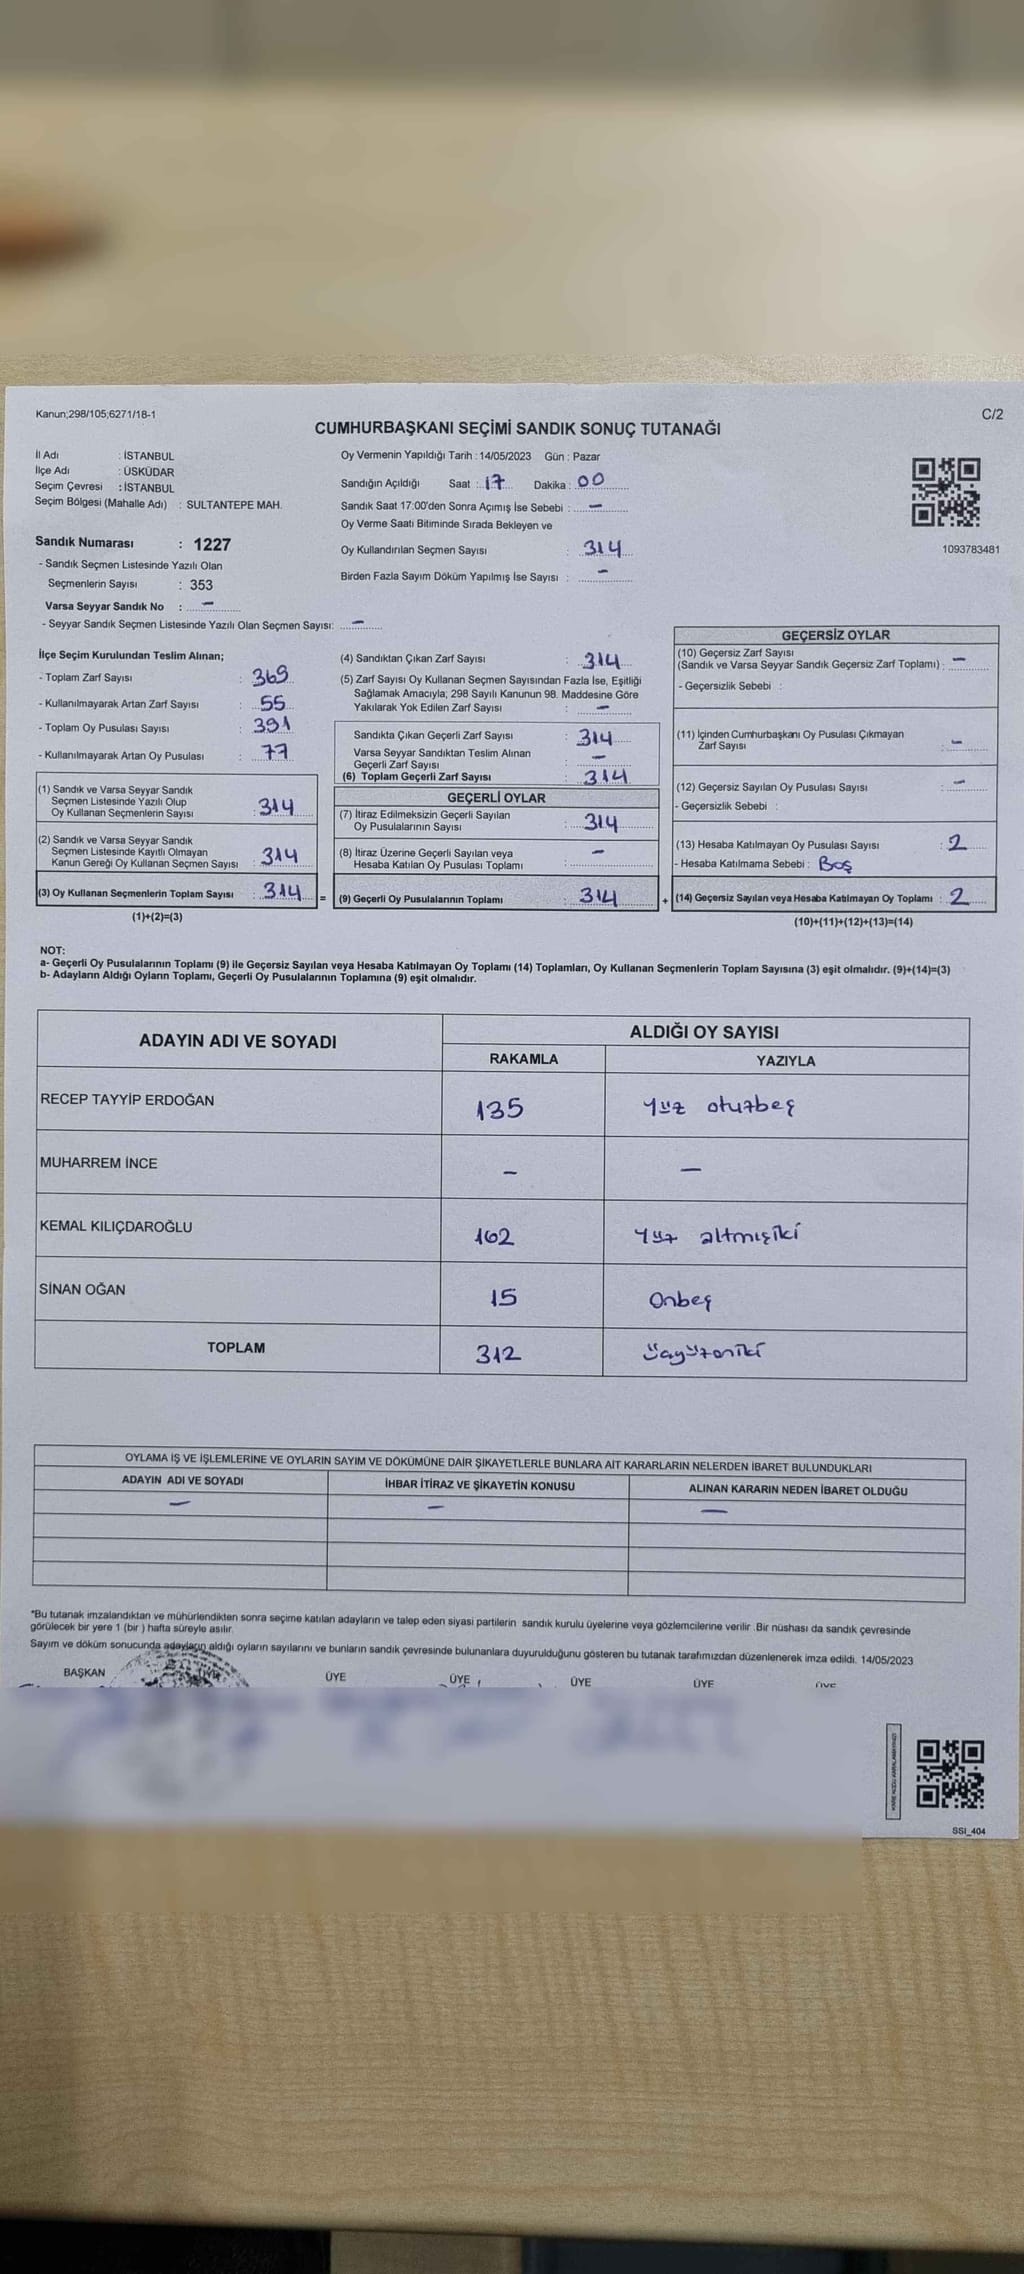 Kanun;298/105;6271/18-1
C/2
CUMHURBAŞKANI SEÇİMİ SANDIK SONUÇ TUTANAĞI
İl Adı : İSTANBUL
İlçe Adı : ÜSKÜDAR
Seçim Çevresi : İSTANBUL
Seçim Bölgesi (Mahalle Adı) : SULTANTEPE MAH.
Oy Vermenin Yapıldığı Tarih : 14/05/2023 Gün : Pazar
Sandığın Açıldığı Saat : 17 Dakika : 00
Sandık Saat 17:00'den Sonra Açımış İse Sebebi : –
Oy Verme Saati Bitiminde Sırada Bekleyen ve
Oy Kullandırılan Seçmen Sayısı : 314
Birden Fazla Sayım Döküm Yapılmış İse Sayısı : –
1093783481
Sandık Numarası : 1227
- Sandık Seçmen Listesinde Yazılı Olan
Seçmenlerin Sayısı : 353
Varsa Seyyar Sandık No : –
- Seyyar Sandık Seçmen Listesinde Yazılı Olan Seçmen Sayısı: –
İlçe Seçim Kurulundan Teslim Alınan;
- Toplam Zarf Sayısı : 369
- Kullanılmayarak Artan Zarf Sayısı : 55
- Toplam Oy Pusulası Sayısı : 391
- Kullanılmayarak Artan Oy Pusulası : 77
(1) Sandık ve Varsa Seyyar Sandık
Seçmen Listesinde Yazılı Olup
Oy Kullanan Seçmenlerin Sayısı : 314
(2) Sandık ve Varsa Seyyar Sandık
Seçmen Listesinde Kayıtlı Olmayan
Kanun Gereği Oy Kullanan Seçmen Sayısı : 314
(3) Oy Kullanan Seçmenlerin Toplam Sayısı : 314 =
(1)+(2)=(3)
(4) Sandıktan Çıkan Zarf Sayısı : 314
(5) Zarf Sayısı Oy Kullanan Seçmen Sayısından Fazla İse, Eşitliği
Sağlamak Amacıyla; 298 Sayılı Kanunun 98. Maddesine Göre
Yakılarak Yok Edilen Zarf Sayısı : –
Sandıkta Çıkan Geçerli Zarf Sayısı : 314
Varsa Seyyar Sandıktan Teslim Alınan
Geçerli Zarf Sayısı : –
(6) Toplam Geçerli Zarf Sayısı : 314
GEÇERLİ OYLAR
(7) İtiraz Edilmeksizin Geçerli Sayılan
Oy Pusulalarının Sayısı : 314
(8) İtiraz Üzerine Geçerli Sayılan veya
Hesaba Katılan Oy Pusulası Toplamı : –
(9) Geçerli Oy Pusulalarının Toplamı : 314 +
GEÇERSİZ OYLAR
(10) Geçersiz Zarf Sayısı
(Sandık ve Varsa Seyyar Sandık Geçersiz Zarf Toplamı) : –
- Geçersizlik Sebebi :
(11) İçinden Cumhurbaşkanı Oy Pusulası Çıkmayan
Zarf Sayısı : –
(12) Geçersiz Sayılan Oy Pusulası Sayısı : –
- Geçersizlik Sebebi :
(13) Hesaba Katılmayan Oy Pusulası Sayısı : 2
- Hesaba Katılmama Sebebi : Boş
(14) Geçersiz Sayılan veya Hesaba Katılmayan Oy Toplamı : 2
(10)+(11)+(12)+(13)=(14)
NOT:
a- Geçerli Oy Pusulalarının Toplamı (9) ile Geçersiz Sayılan veya Hesaba Katılmayan Oy Toplamı (14) Toplamları, Oy Kullanan Seçmenlerin Toplam Sayısına (3) eşit olmalıdır. (9)+(14)=(3)
b- Adayların Aldığı Oyların Toplamı, Geçerli Oy Pusulalarının Toplamına (9) eşit olmalıdır.
ADAYIN ADI VE SOYADI
ALDIĞI OY SAYISI
RAKAMLA YAZIYLA
RECEP TAYYİP ERDOĞAN 135 Yüz otuzbeş
MUHARREM İNCE – –
KEMAL KILIÇDAROĞLU 162 Yüz altmışiki
SİNAN OĞAN 15 Onbeş
TOPLAM 312 üçyüzoniki
OYLAMA İŞ VE İŞLEMLERİNE VE OYLARIN SAYIM VE DÖKÜMÜNE DAİR ŞİKAYETLERLE BUNLARA AİT KARARLARIN NELERDEN İBARET BULUNDUKLARI
ADAYIN ADI VE SOYADI İHBAR İTİRAZ VE ŞİKAYETİN KONUSU ALINAN KARARIN NEDEN İBARET OLDUĞU
– – –
*Bu tutanak imzalandıktan ve mühürlendikten sonra seçime katılan adayların ve talep eden siyasi partilerin sandık kurulu üyelerine veya gözlemcilerine verilir .Bir nüshası da sandık çevresinde
görülecek bir yere 1 (bir ) hafta süreyle asılır.
Sayım ve döküm sonucunda adayların aldığı oyların sayılarını ve bunların sandık çevresinde bulunanlara duyurulduğunu gösteren bu tutanak tarafımızdan düzenlenerek imza edildi. 14/05/2023
BAŞKAN ÜYE ÜYE ÜYE ÜYE ÜYE
SSI_404